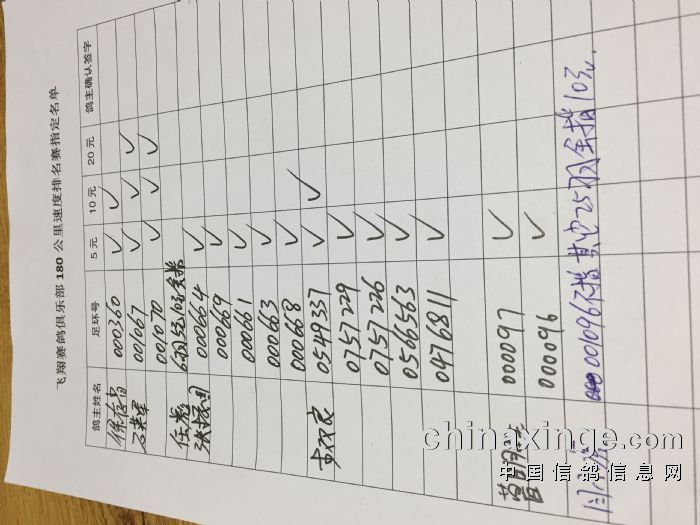 飞翔赛鸽俱乐部 180 公里速度排名赛指定名单
鸽主姓名 足环号 5 元 10 元 20 元 鸽主确认签字
000360 ✓ ✓
001067 ✓ ✓ ✓
001070 ✓ ✓ ✓
000664 ✓
000669 ✓
000661 ✓
000663 ✓
000668 ✓
0549337 ✓ ✓
0757229 ✓
0757226 ✓
0566563 ✓
0476811 ✓
000097 ✓
000096 ✓
001096不指 其中25羽全指10元
chinaxinge.com
中国信鸽信息网